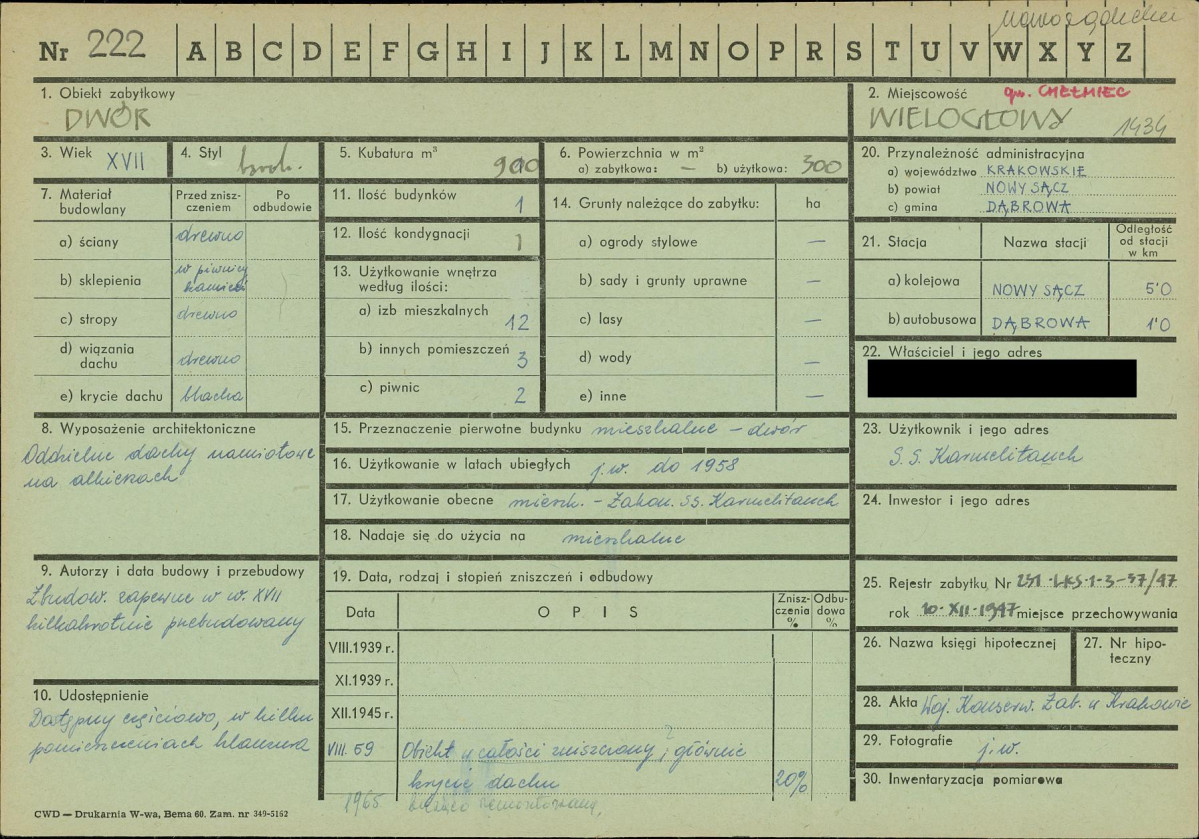 Nowosądeckie
Nr 222 A B C D E F G H I J K L M N O P R S T U V W X Y Z
1. Obiekt zabytkowy
DWÓR
2. Miejscowość gm. CHEŁMIEC
WIELOGŁOWY 1434
3. Wiek XVII
4. Styl
5. Kubatura m³ 900
6. Powierzchnia w m²
a) zabytkowa: — b) użytkowa: 300
7. Materiał budowlany
Przed zniszczeniem
Po odbudowie
a) ściany drewno
b) sklepienia w piwnicy kamień
c) stropy drewno
d) wiązania dachu drewno
e) krycie dachu blacha
8. Wyposażenie architektoniczne
Oddzielne dachy namiotowe
na alkierzach
9. Autorzy i data budowy i przebudowy
Zbudow. zapewne w w. XVII
kilkakrotnie przebudowany
10. Udostępnienie
Dostępny częściowo, w kilku
pomieszczeniach klauzura
11. Ilość budynków 1
12. Ilość kondygnacji 1
13. Użytkowanie wnętrza
według ilości:
a) izb mieszkalnych 12
b) innych pomieszczeń 3
c) piwnic 2
14. Grunty należące do zabytku: ha
a) ogrody stylowe —
b) sady i grunty uprawne —
c) lasy —
d) wody —
e) inne —
15. Przeznaczenie pierwotne budynku mieszkalne - dwór
16. Użytkowanie w latach ubiegłych j.w. do 1958
17. Użytkowanie obecne mieszk. - Zakon. SS. Karmelitanek
18. Nadaje się do użycia na mieszkalne
19. Data, rodzaj i stopień zniszczeń i odbudowy
Data
OPIS
Zniszczenia %
Odbudowa %
VIII.1939 r.
XI.1939 r.
XII.1945 r.
VIII. 59 Obiekt w całości zniszczony, głównie
krycie dachu 20%
1965 bieżąco remontowany
20. Przynależność administracyjna
a) województwo KRAKOWSKIE
b) powiat NOWY SĄCZ
c) gmina DĄBROWA
21. Stacja
Nazwa stacji
Odległość od stacji w km
a) kolejowa NOWY SĄCZ 5'0
b) autobusowa DĄBROWA 1'0
22. Właściciel i jego adres
23. Użytkownik i jego adres
S.S. Karmelitanek
24. Inwestor i jego adres
25. Rejestr zabytku Nr 231-LKS-1-3-37/47
rok 10-XII-1947 miejsce przechowywania
26. Nazwa księgi hipotecznej
27. Nr hipoteczny
28. Akta Woj. Konserw. Zab. w Krakowie
29. Fotografie j.w.
30. Inwentaryzacja pomiarowa
CWD — Drukarnia W-wa, Bema 60. Zam. nr 349-5162